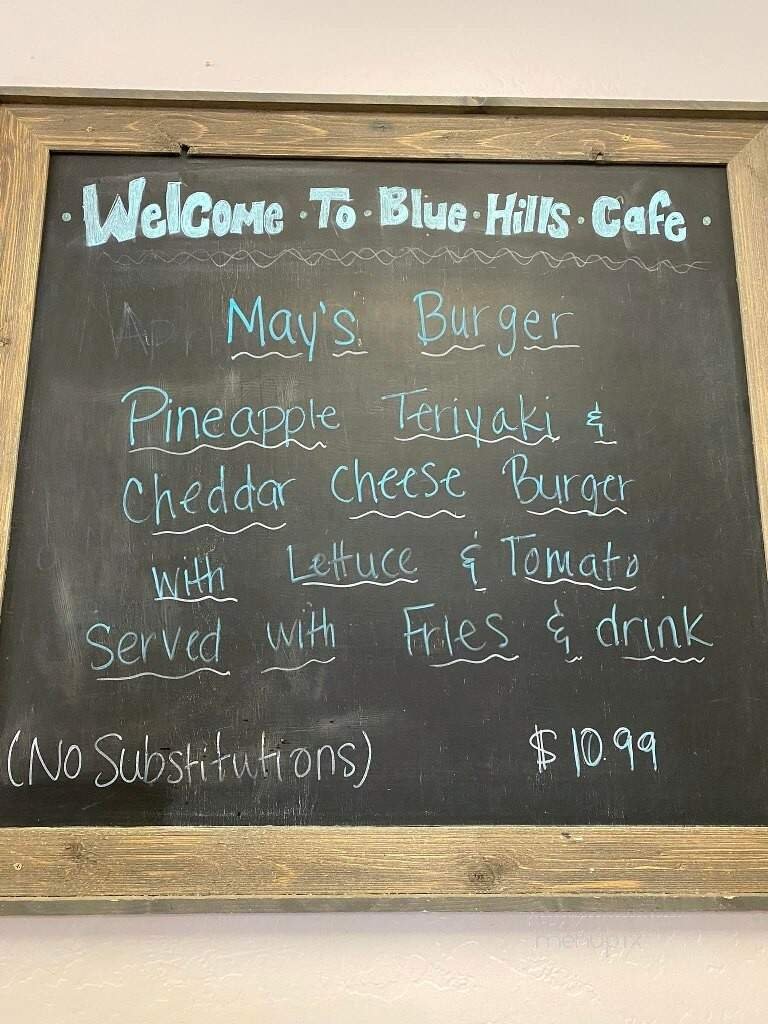 Welcome · To · Blue · Hills · Cafe
May's Burger
Pineapple Teriyaki &
Cheddar Cheese Burger
with Lettuce & Tomato
Served with Fries & drink
(No Substitutions) $10.99
menupix